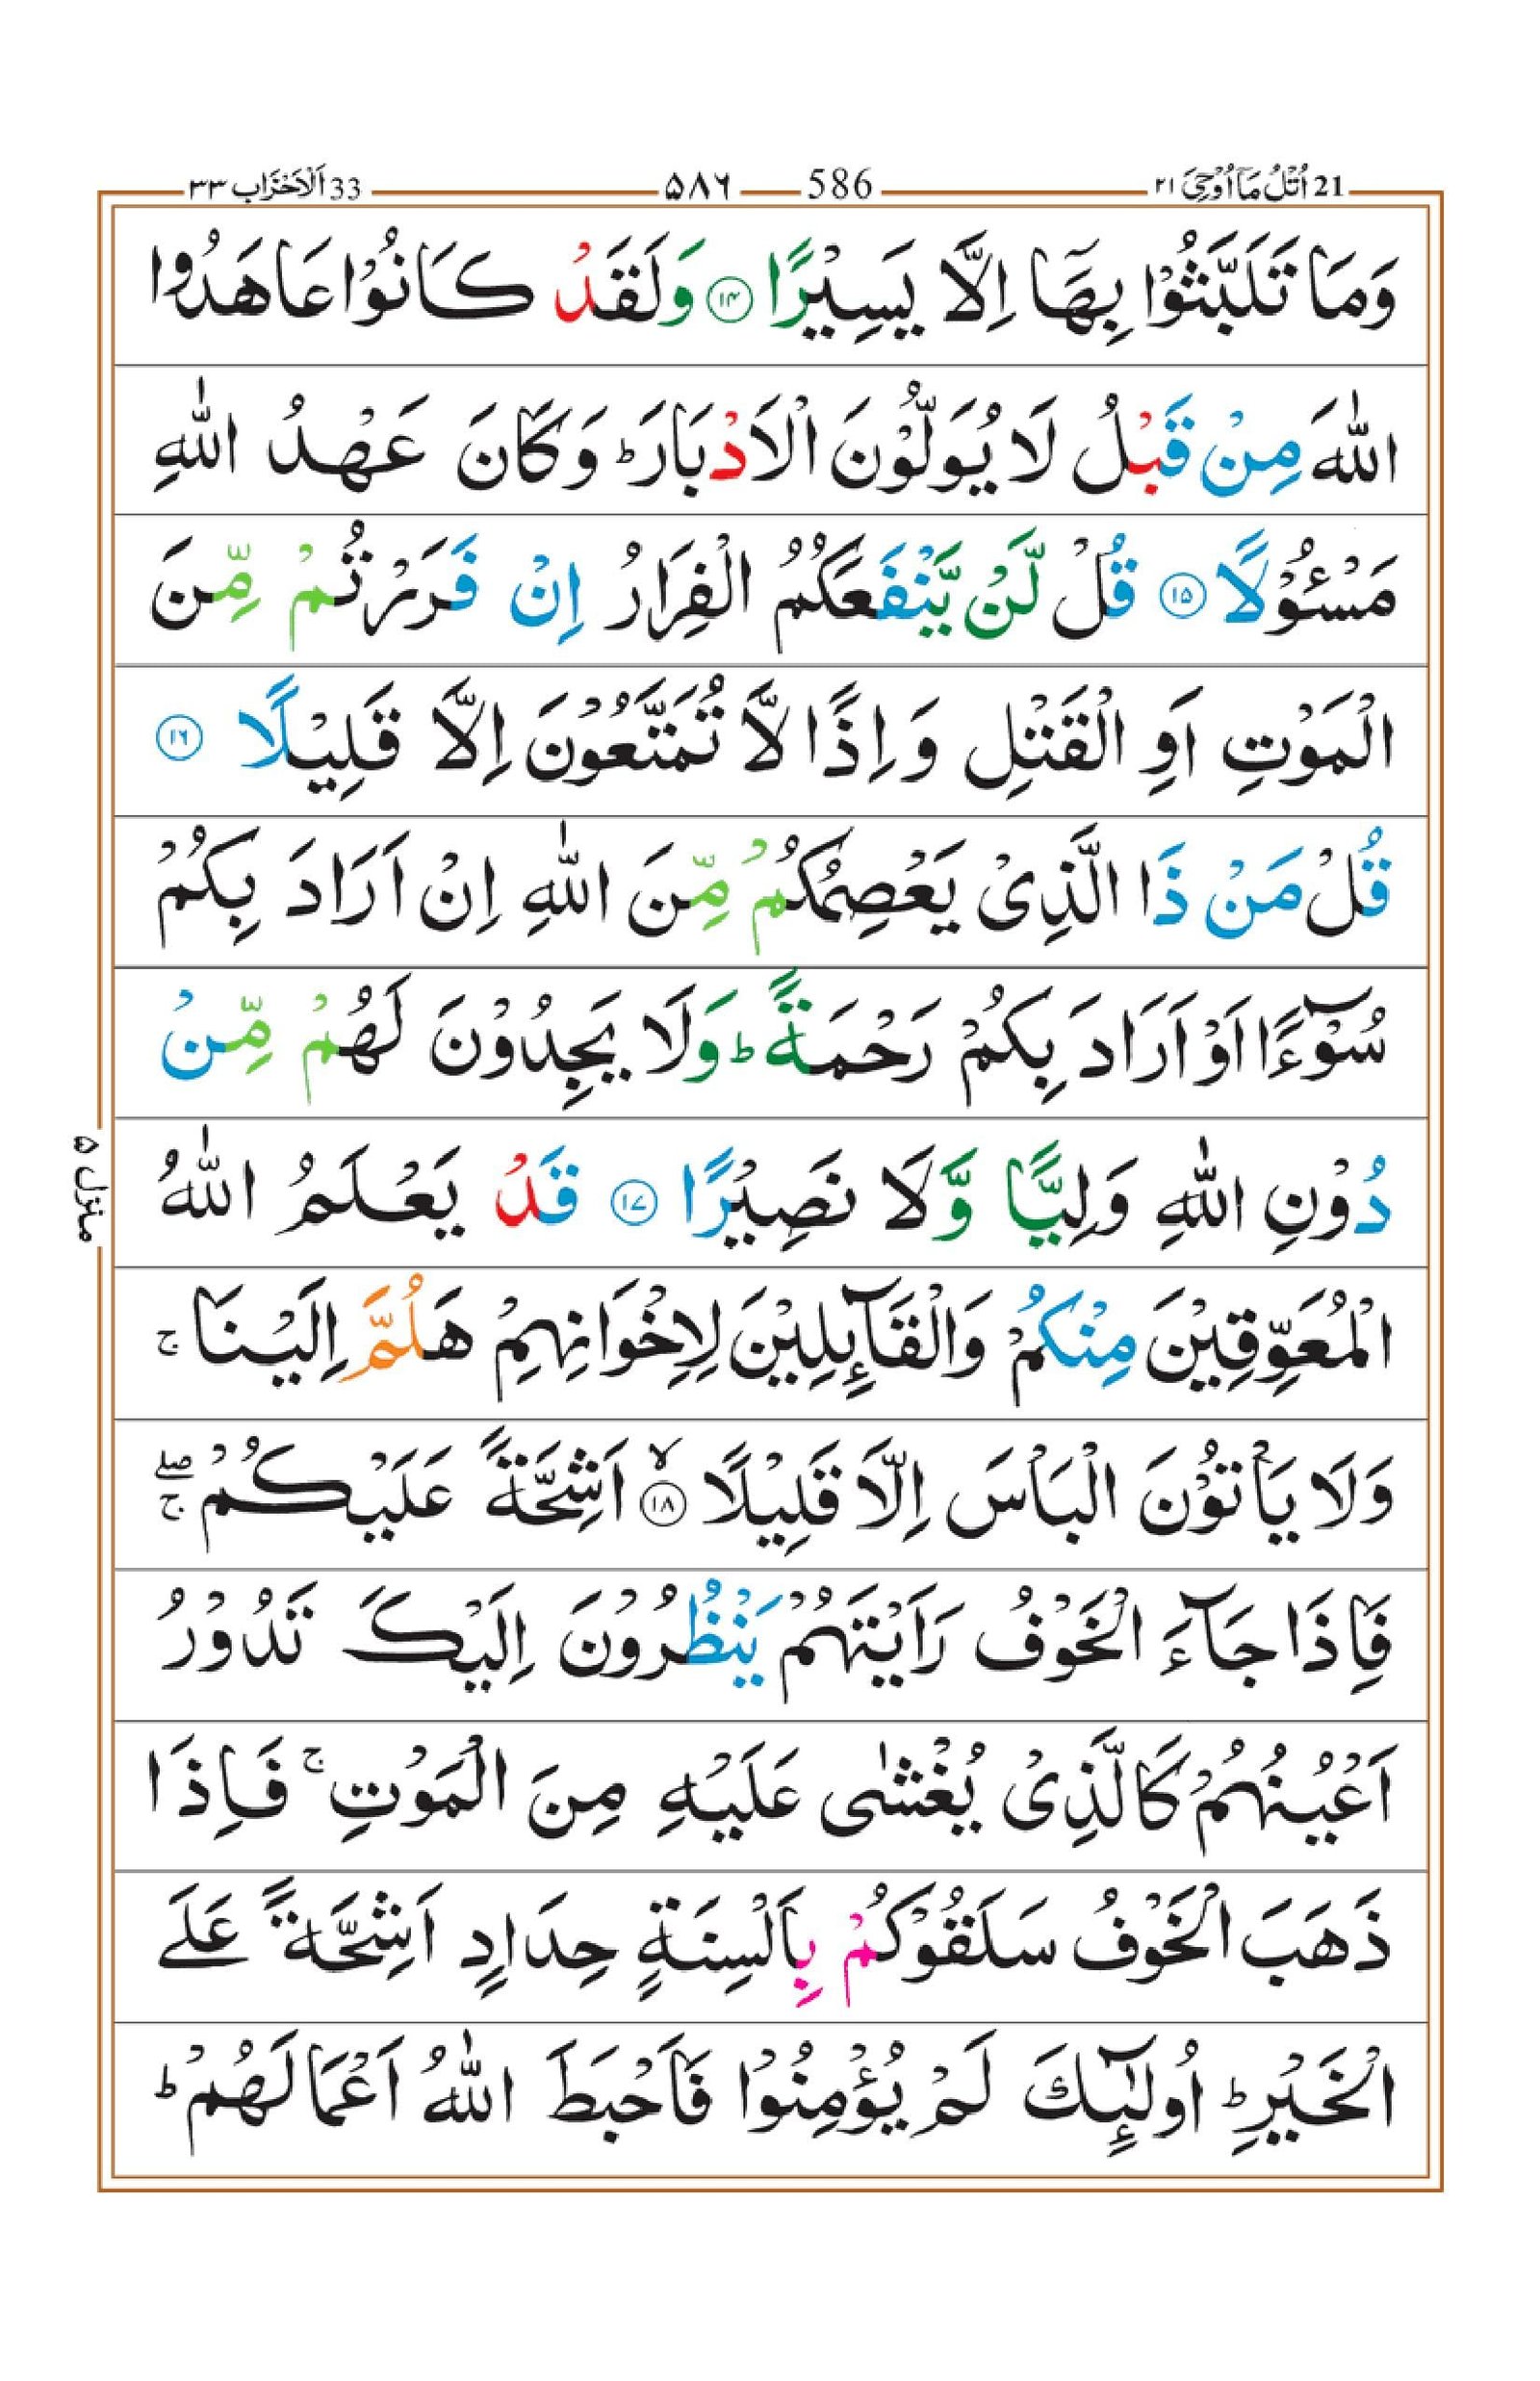 21 اُتْلُ مَآ اُوْحِیَ ٢١
586 ۵۸۶
33 اَلْاَحْزَاب ٣٣
وَمَا تَلَبَّثُوْا بِهَاۤ اِلَّا يَسِيْرًا ۝۱۴ وَلَقَدْ كَانُوْا عَاهَدُوا
اللّٰهَ مِنْ قَبْلُ لَا يُوَلُّوْنَ الْاَدْبَارَ ؕ وَكَانَ عَهْدُ اللّٰهِ
مَسْـُٔوْلًا ۝۱۵ قُلْ لَّنْ يَّنْفَعَكُمُ الْفِرَارُ اِنْ فَرَرْتُمْ مِّنَ
الْمَوْتِ اَوِ الْقَتْلِ وَاِذًا لَّا تُمَتَّعُوْنَ اِلَّا قَلِيْلًا ۝۱۶
قُلْ مَنْ ذَا الَّذِىْ يَعْصِمُكُمْ مِّنَ اللّٰهِ اِنْ اَرَادَ بِكُمْ
سُوْٓءًا اَوْ اَرَادَ بِكُمْ رَحْمَةً ؕ وَلَا يَجِدُوْنَ لَهُمْ مِّنْ
دُوْنِ اللّٰهِ وَلِيًّا وَّلَا نَصِيْرًا ۝۱۷ قَدْ يَعْلَمُ اللّٰهُ
الْمُعَوِّقِيْنَ مِنْكُمْ وَالْقَآئِلِيْنَ لِاِخْوَانِهِمْ هَلُمَّ اِلَيْنَا ۚ
وَلَا يَاْتُوْنَ الْبَاْسَ اِلَّا قَلِيْلًا ۙ۝۱۸ اَشِحَّةً عَلَيْكُمْ ۖۚ
فَاِذَا جَآءَ الْخَوْفُ رَاَيْتَهُمْ يَنْظُرُوْنَ اِلَيْكَ تَدُوْرُ
اَعْيُنُهُمْ كَالَّذِىْ يُغْشٰى عَلَيْهِ مِنَ الْمَوْتِ ۚ فَاِذَا
ذَهَبَ الْخَوْفُ سَلَقُوْكُمْ بِاَلْسِنَةٍ حِدَادٍ اَشِحَّةً عَلَے
الْخَيْرِ ؕ اُولٰٓئِكَ لَمْ يُؤْمِنُوْا فَاَحْبَطَ اللّٰهُ اَعْمَالَهُمْ ؕ
منزل ۵